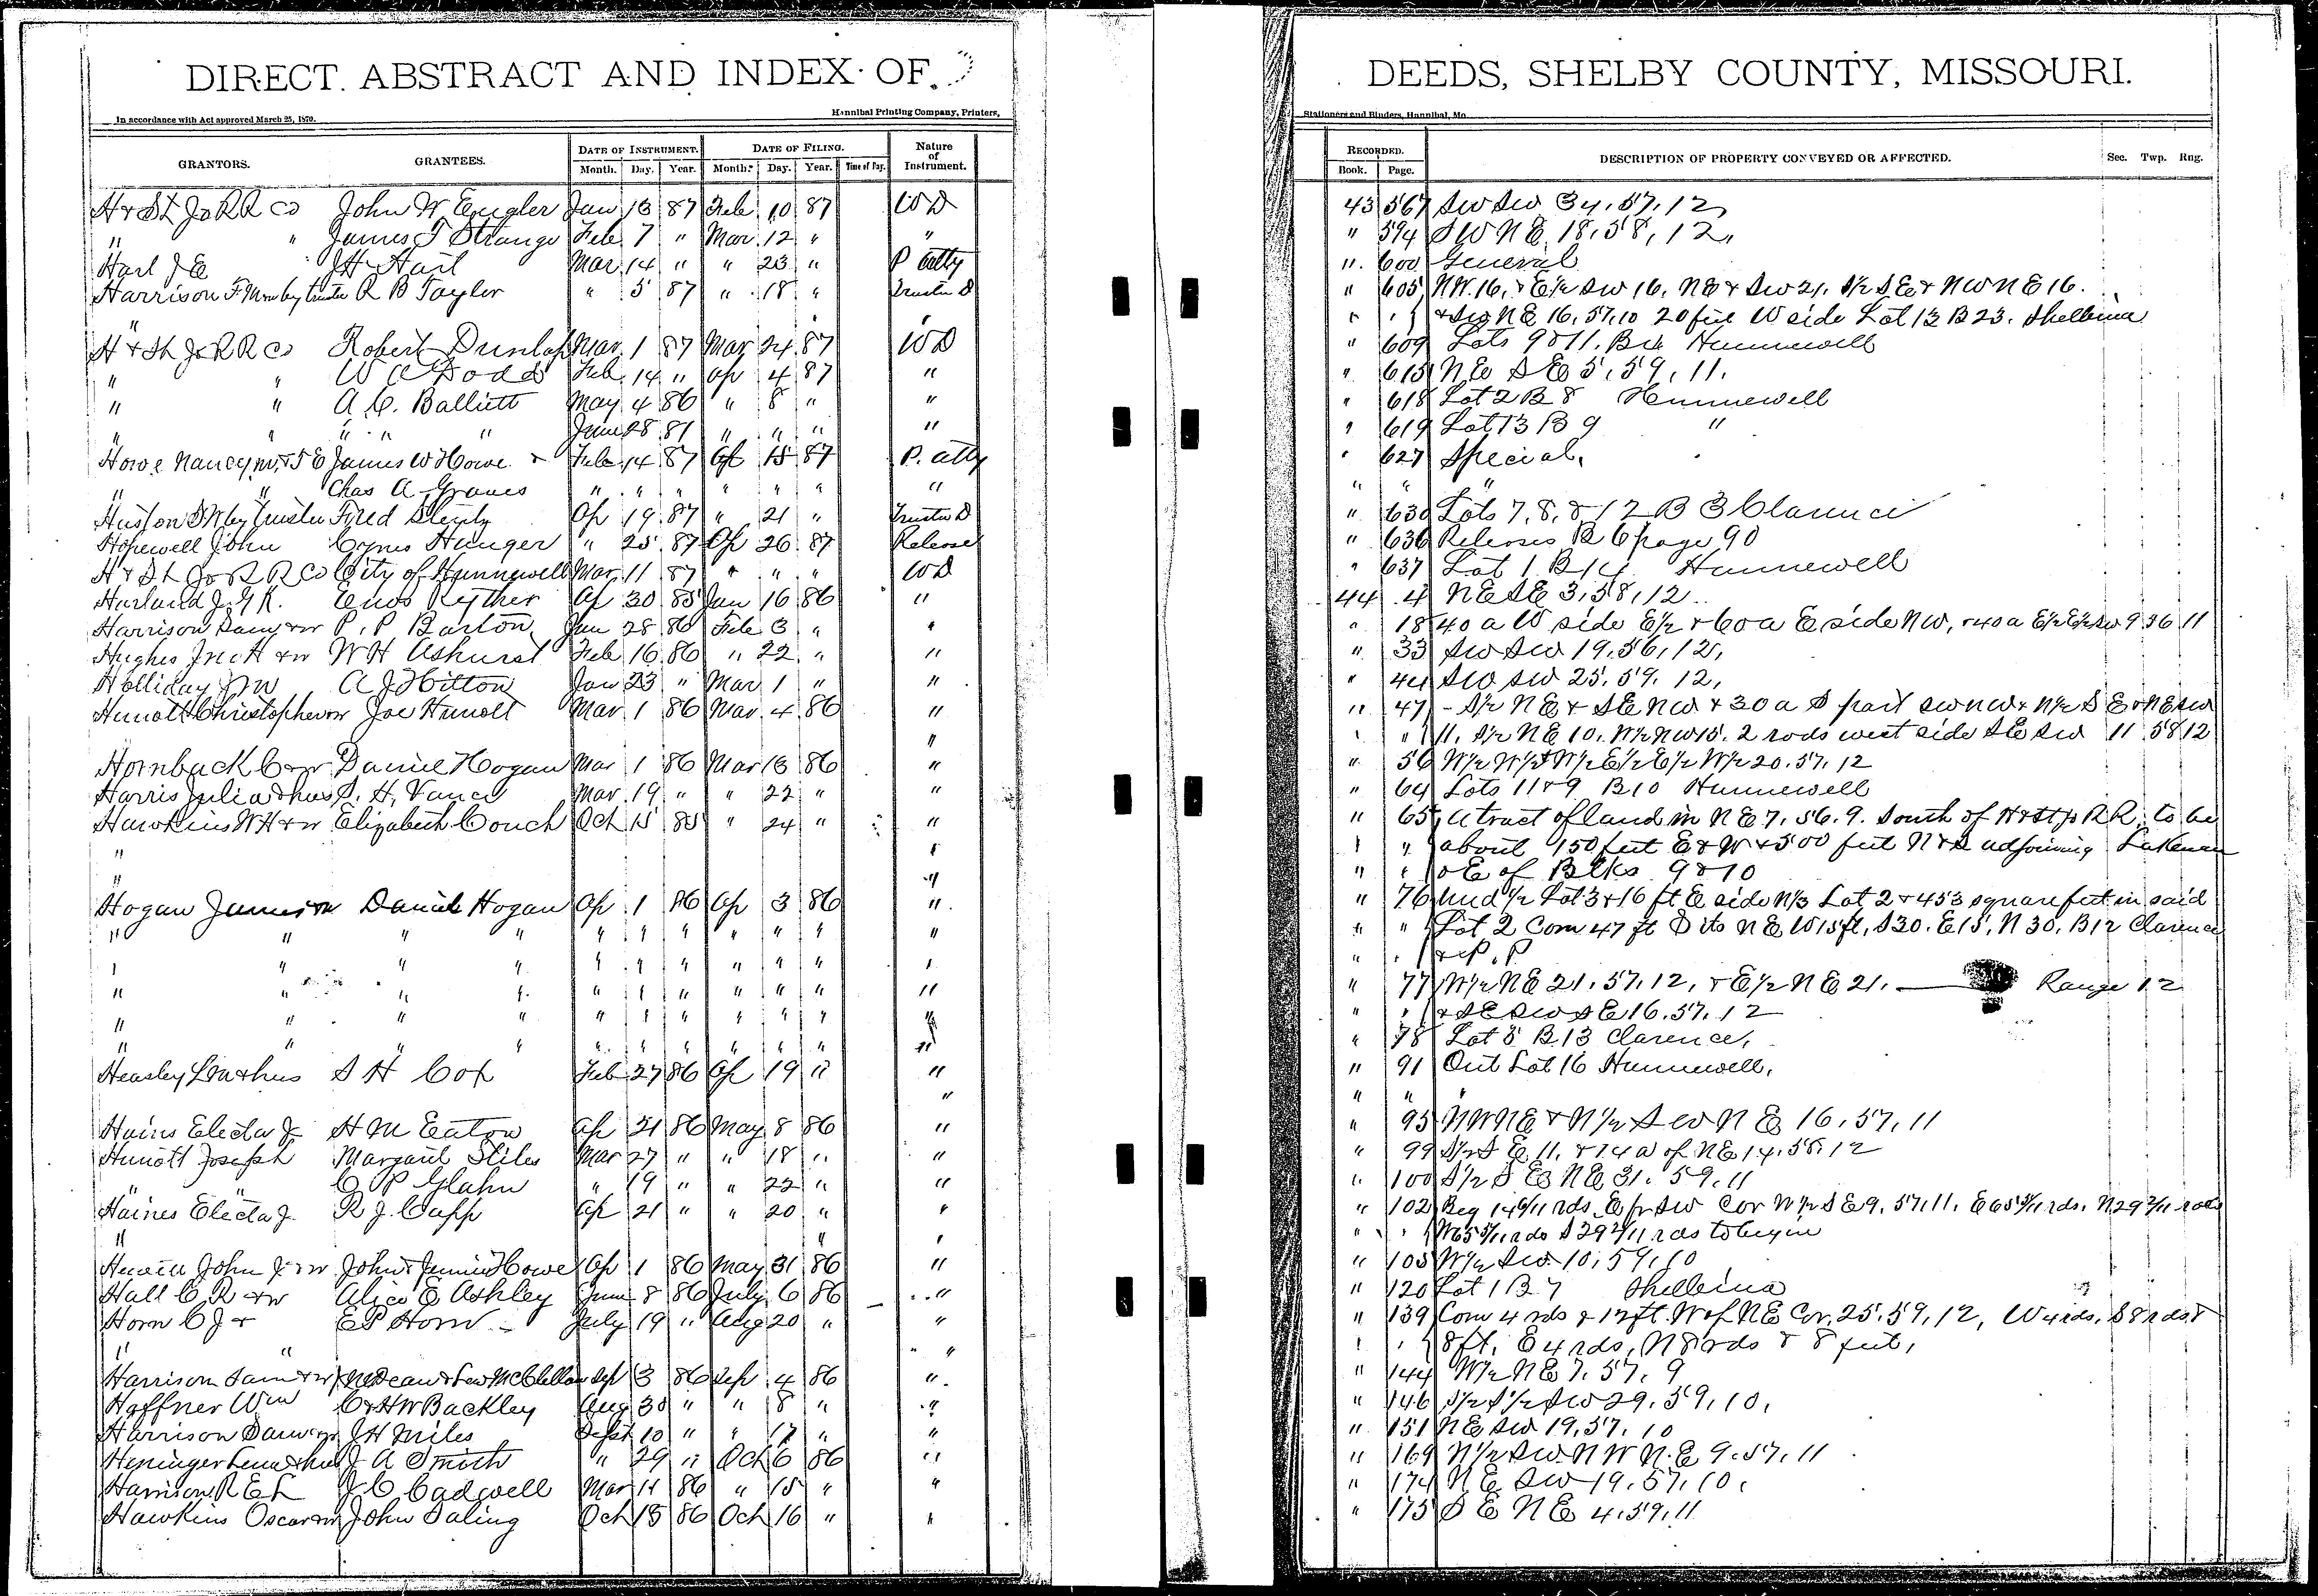 DIRECT. ABSTRACT AND INDEX OF
DEEDS, SHELBY COUNTY, MISSOURI.
In accordance with Act approved March 25, 1870.
Hannibal Printing Company, Printers,
Stationers and Binders, Hannibal, Mo.
GRANTORS. GRANTEES. DATE OF INSTRUMENT. DATE OF FILING. Nature of Instrument.
Month. Day. Year. Month. Day. Year. Time of Day.
RECORDED. DESCRIPTION OF PROPERTY CONVEYED OR AFFECTED. Sec. Twp. Rng.
Book. Page.
H & St Jo R R Co John W Engler Jan 13 87 Feb 10 87 W D 43 567 SW SW 34, 57, 12,
" " James T Strange Feb 7 " Mar 12 " " " 594 SW NE 18, 58, 12,
Harl J E J H Harl Mar 14 " " 23 " P atty " 600 General
Harrison F M by trustee R B Taylor " 5 87 " 18 " Trustee D " 605 NW 16, & E½ SW 16, NE & SW 21, S½ SE & NW NE 16.
" " " & SW NE 16, 57, 10 20 feet W side Lot 13 B 23. Shelbina
H & St Jo R R Co Robert Dunlap Mar 1 87 Mar 24 87 W D " 609 Lots 9 & 11, B 4 Hunnewell
" " W A Dodd Feb 14 " Ap 4 87 " " 615 NE SE 5, 59, 11.
" " A C. Balliett May 4 86 " 8 " " " 618 Lot 2 B 8 Hunnewell
" " " " " June 28 81 " " " " " 619 Lot 13 B 9 "
Howe Nancy M & T E James W Howe & Feb 14 87 Ap 15 87 P. atty " 627 Special,
" " Chas A Graves " " " " " " " " " "
Huston J W by trustee Fred Ap 19 87 " 21 " Trustee D " 630 Lots 7, 8, & 12 B 3 Clarence
Hopewell John Cyrus Hunger " 25 87 Ap 26 87 Release " 636 Releases B 6 page 90
H & St Jo R R Co City of Hunnewell Mar 11 87 " " " W D " 637 Lot 1 B 14 Hunnewell
Harland J. G K. Enos Ryther Ap 30 85 Jan 16 86 " 44 4 NE SE 3, 58, 12
Harrison Sam & w P. P Barton Jan 28 86 Feb 3 " " " 18 40 a W side E½ & 60 a E side NW, & 40 a E½ E½ SW 9 56 11
Hughes Jno H & w W H Ashurst Feb 16 86 " 22 " " " 33 SW SW 19, 56, 12,
Holliday J W A J Hilton Jan 23 " Mar 1 " " " 44 SW SW 25, 59, 12,
Hunolt Christopher & w Joe Hunolt Mar 1 86 Mar 4 86 " " 47 S½ NE & SE NW & 30 a S part SW NW & N½ SE & NE SW
" " " 11, S½ NE 10, N½ NW 15, 2 rods west side SE SW 11 58 12
Hornback C & w Daniel Hogan Mar 1 86 Mar 13 86 " " 56 W½ W½ & W½ E½ E½ W½ 20, 57, 12
Harris Julia & hus S. H. Vance Mar 19 " " 22 " " " 64 Lots 11 & 9 B 10 Hunnewell
Hawkins W H & w Elizabeth Couch Oct 15 85 " 24 " " " 65 A tract of land in NE 7, 56, 9. South of H & St Jo R R, to be
" " " " about 150 feet E & W & 500 feet N & S adjoining Lakenan
" " " " & E of Blks 9 & 10
Hogan James & w Daniel Hogan Ap 1 86 Ap 3 86 " " 76 Und ½ Lot 3 & 16 ft E side N⅓ Lot 2 & 453 square feet in said
" " " " " " " " " " " " " Lot 2 Com 47 ft S its NE W 15 ft, S 30, E 15, N 30, B 12 Clarence
" " " " " " " " " " " " " & P. P
" " " " " " " " " " " " 77 W½ NE 21, 57, 12, & E½ NE 21, Range 12
" " " " " " " " " " " " " & SE SW SE 16, 57, 12
" " " " " " " " " " " " 78 Lot 8 B 13 Clarence,
Heasley L & hus S H Cox Feb 27 86 Ap 19 " " " 91 Out Lot 16 Hunnewell,
" " " "
Hains Electa J H M Eaton Ap 21 86 May 8 86 " " 95 NW NE & N½ SW NE 16, 57, 11
Hunolt Joseph Margaret Stiles Mar 27 " " 18 " " " 99 S½ SE 11, & 14 a of NE 14, 58, 12
" " C P Glahn " 19 " " 22 " " " 100 S½ SE NE 31, 59, 11
Haines Electa J. R J. Capp Ap 21 " " 20 " " " 102 Beg 14 6/11 rds E fr SW Cor W½ SE 9, 57, 11, E 65 5/11 rds, N 29 2/11 rods
" " " " " W 65 5/11 rds S 29 2/11 rds to begin
John J & w John & Jennie Howe Ap 1 86 May 31 86 " " 105 W½ SW 10, 59, 10
Hall C R & w Alice E Ashley June 8 86 July 6 86 " " 120 Lot 1 B 7 Shelbina
Horn C J & E P Horn July 19 " Aug 20 " " " 139 Com 4 rds & 12 ft W of NE Cor, 25, 59, 12, W 4 rds, S 8 rds &
" " " " " 8 ft, E 4 rds, N 8 rds & 8 feet,
Harrison Sam & w McClellan Sep 3 86 Sep 4 86 " " 144 W½ NE 7, 57, 9
Haffner Wm C & H W Backley Aug 30 " " 8 " " " 146 S½ S½ SW 29, 59, 10,
Harrison Sam & w J H Miles Sept 10 " " 17 " " " 151 NE SW 19, 57, 10
Heninger Lena & hus J A Smith " 29 " Oct 6 86 " " 169 N½ SW NW NE 9, 57, 11
Harrison R E L J C Cadwell Mar 11 86 " 15 " " " 174 NE SW 19, 57, 10,
Hawkins Oscar & w John Saling Oct 15 86 Oct 16 " " " 175 SE NE 4, 59, 11